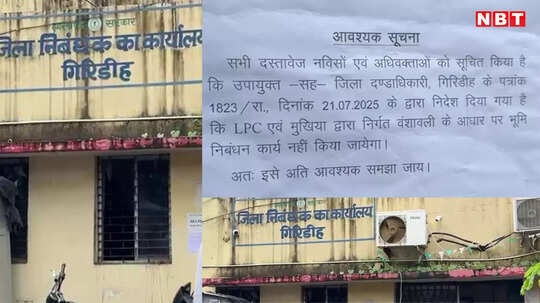 सरकार
जिला निबंधक का कार्यालय
गिरिडीह
NBT
आवश्यक सूचना
सभी दस्तावेज नविसों एवं अधिवक्ताओं को सूचित किया है
कि उपायुक्त –सह– जिला दण्डाधिकारी, गिरिडीह के पत्रांक
1823 /रा., दिनांक 21.07.2025 के द्वारा निदेश दिया गया है
कि LPC एवं मुखिया द्वारा निर्गत वंशावली के आधार पर भूमि
निबंधन कार्य नहीं किया जायेगा।
अतः इसे अति आवश्यक समझा जाय।
जिला निबंधक का कार्यालय
गिरिडीह